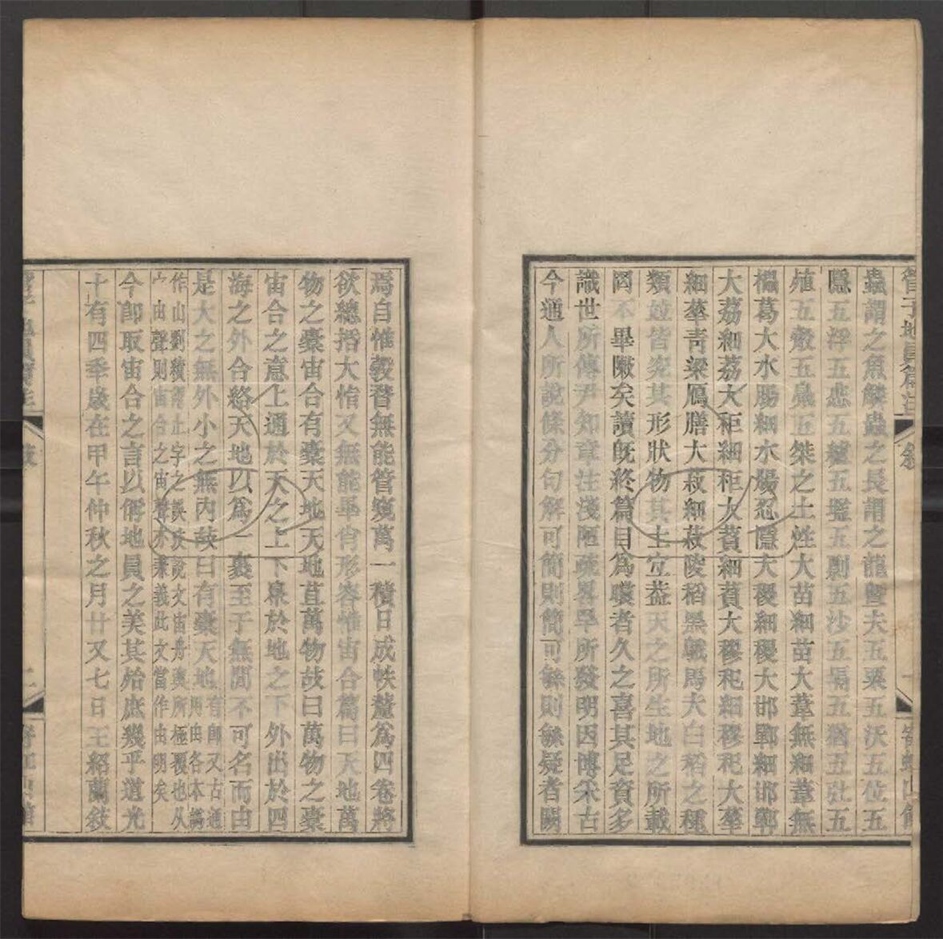 管子地員篇注
敘
一
寄虹山館
蟲謂之魚鱗蟲之長謂之龍曁夫五粟五沃五位五
隱五浮五𢘅五纑五壏五剽五沙五塥五猶五壯五
殖五觳五鳧五桀之土性大苗細苗大葦無細葦無
櫑葛大水腸細水腸忍隱大稷細稷大邯鄲細邯鄲
大荔細荔大秬細秬大蕡細蕡大穋秬細穋秬大華
細華青粱鴈膳大菽細菽陵稻黑鵝馬夫白稻之種
類竝皆究其形狀物其土宜葢天之所生地之所載
罔不畢陳矣讀旣終篇目爲矘者久之喜其足資多
識世所傳尹知章注淺陋疏畧旱所發明因博采古
今通人所說條分句解可簡則簡可緐則緐疑者闕
焉自惟觷瞀無能管窺萬一積日成帙釐爲四卷將
欲總揩大恉又無能畢肖形容惟宙合篇曰天地萬
物之橐宙合有橐天地天地苴萬物故曰萬物之橐
宙合之意上通於天之上下泉於地之下外出於四
海之外合絡天地以爲一裹至于無閒不可名而由
是大之無外小之無內故曰有橐天地
今卽取宙合之言以僃地員之美其殆庶幾乎道光
十有四年歲在甲午仲秋之月廿又七日王紹蘭敘
敘
二